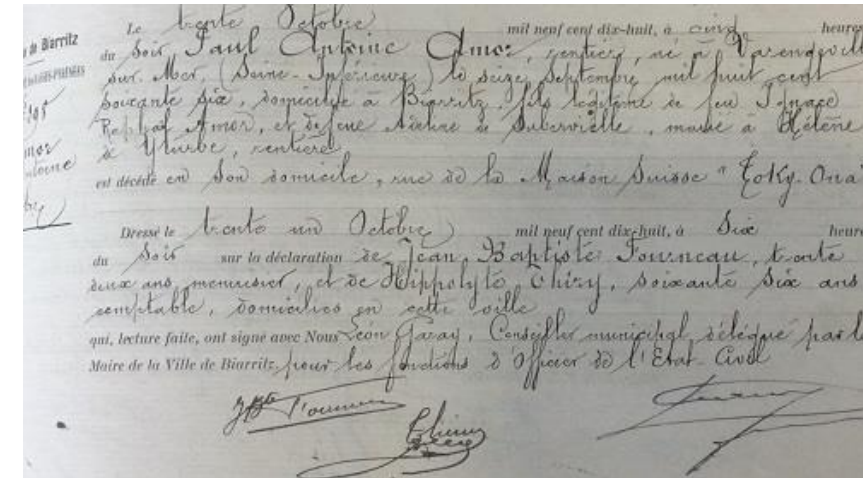 de Biarritz
Le trente Octobre mil neuf cent dix-huit, à cinq heures
du Soir Paul Antoine Amor, rentier, né à Varengeville
sur Mer, (Seine-Inférieure) le seize Septembre mil huit cent
soixante six, domicilié à Biarritz, fils légitime de feu Ignace
Raphaël Amor, et de feue Adeline de Subervielle, marié à Hélène
de Yturbe, rentière
est décédé en son domicile, rue de la Maison Suisse " Toky-Ona"
Dressé le trente un Octobre mil neuf cent dix-huit, à Six heures
du Soir sur la déclaration de Jean Baptiste Fourneau, trente
deux ans menuisier, et de Hippolyte Thiry, soixante six ans
comptable, domiciliés en cette ville
qui, lecture faite, ont signé avec Nous Léon Garay, Conseiller municipal délégué par le
Maire de la Ville de Biarritz, pour les fonctions d'Officier de l'Etat-Civil